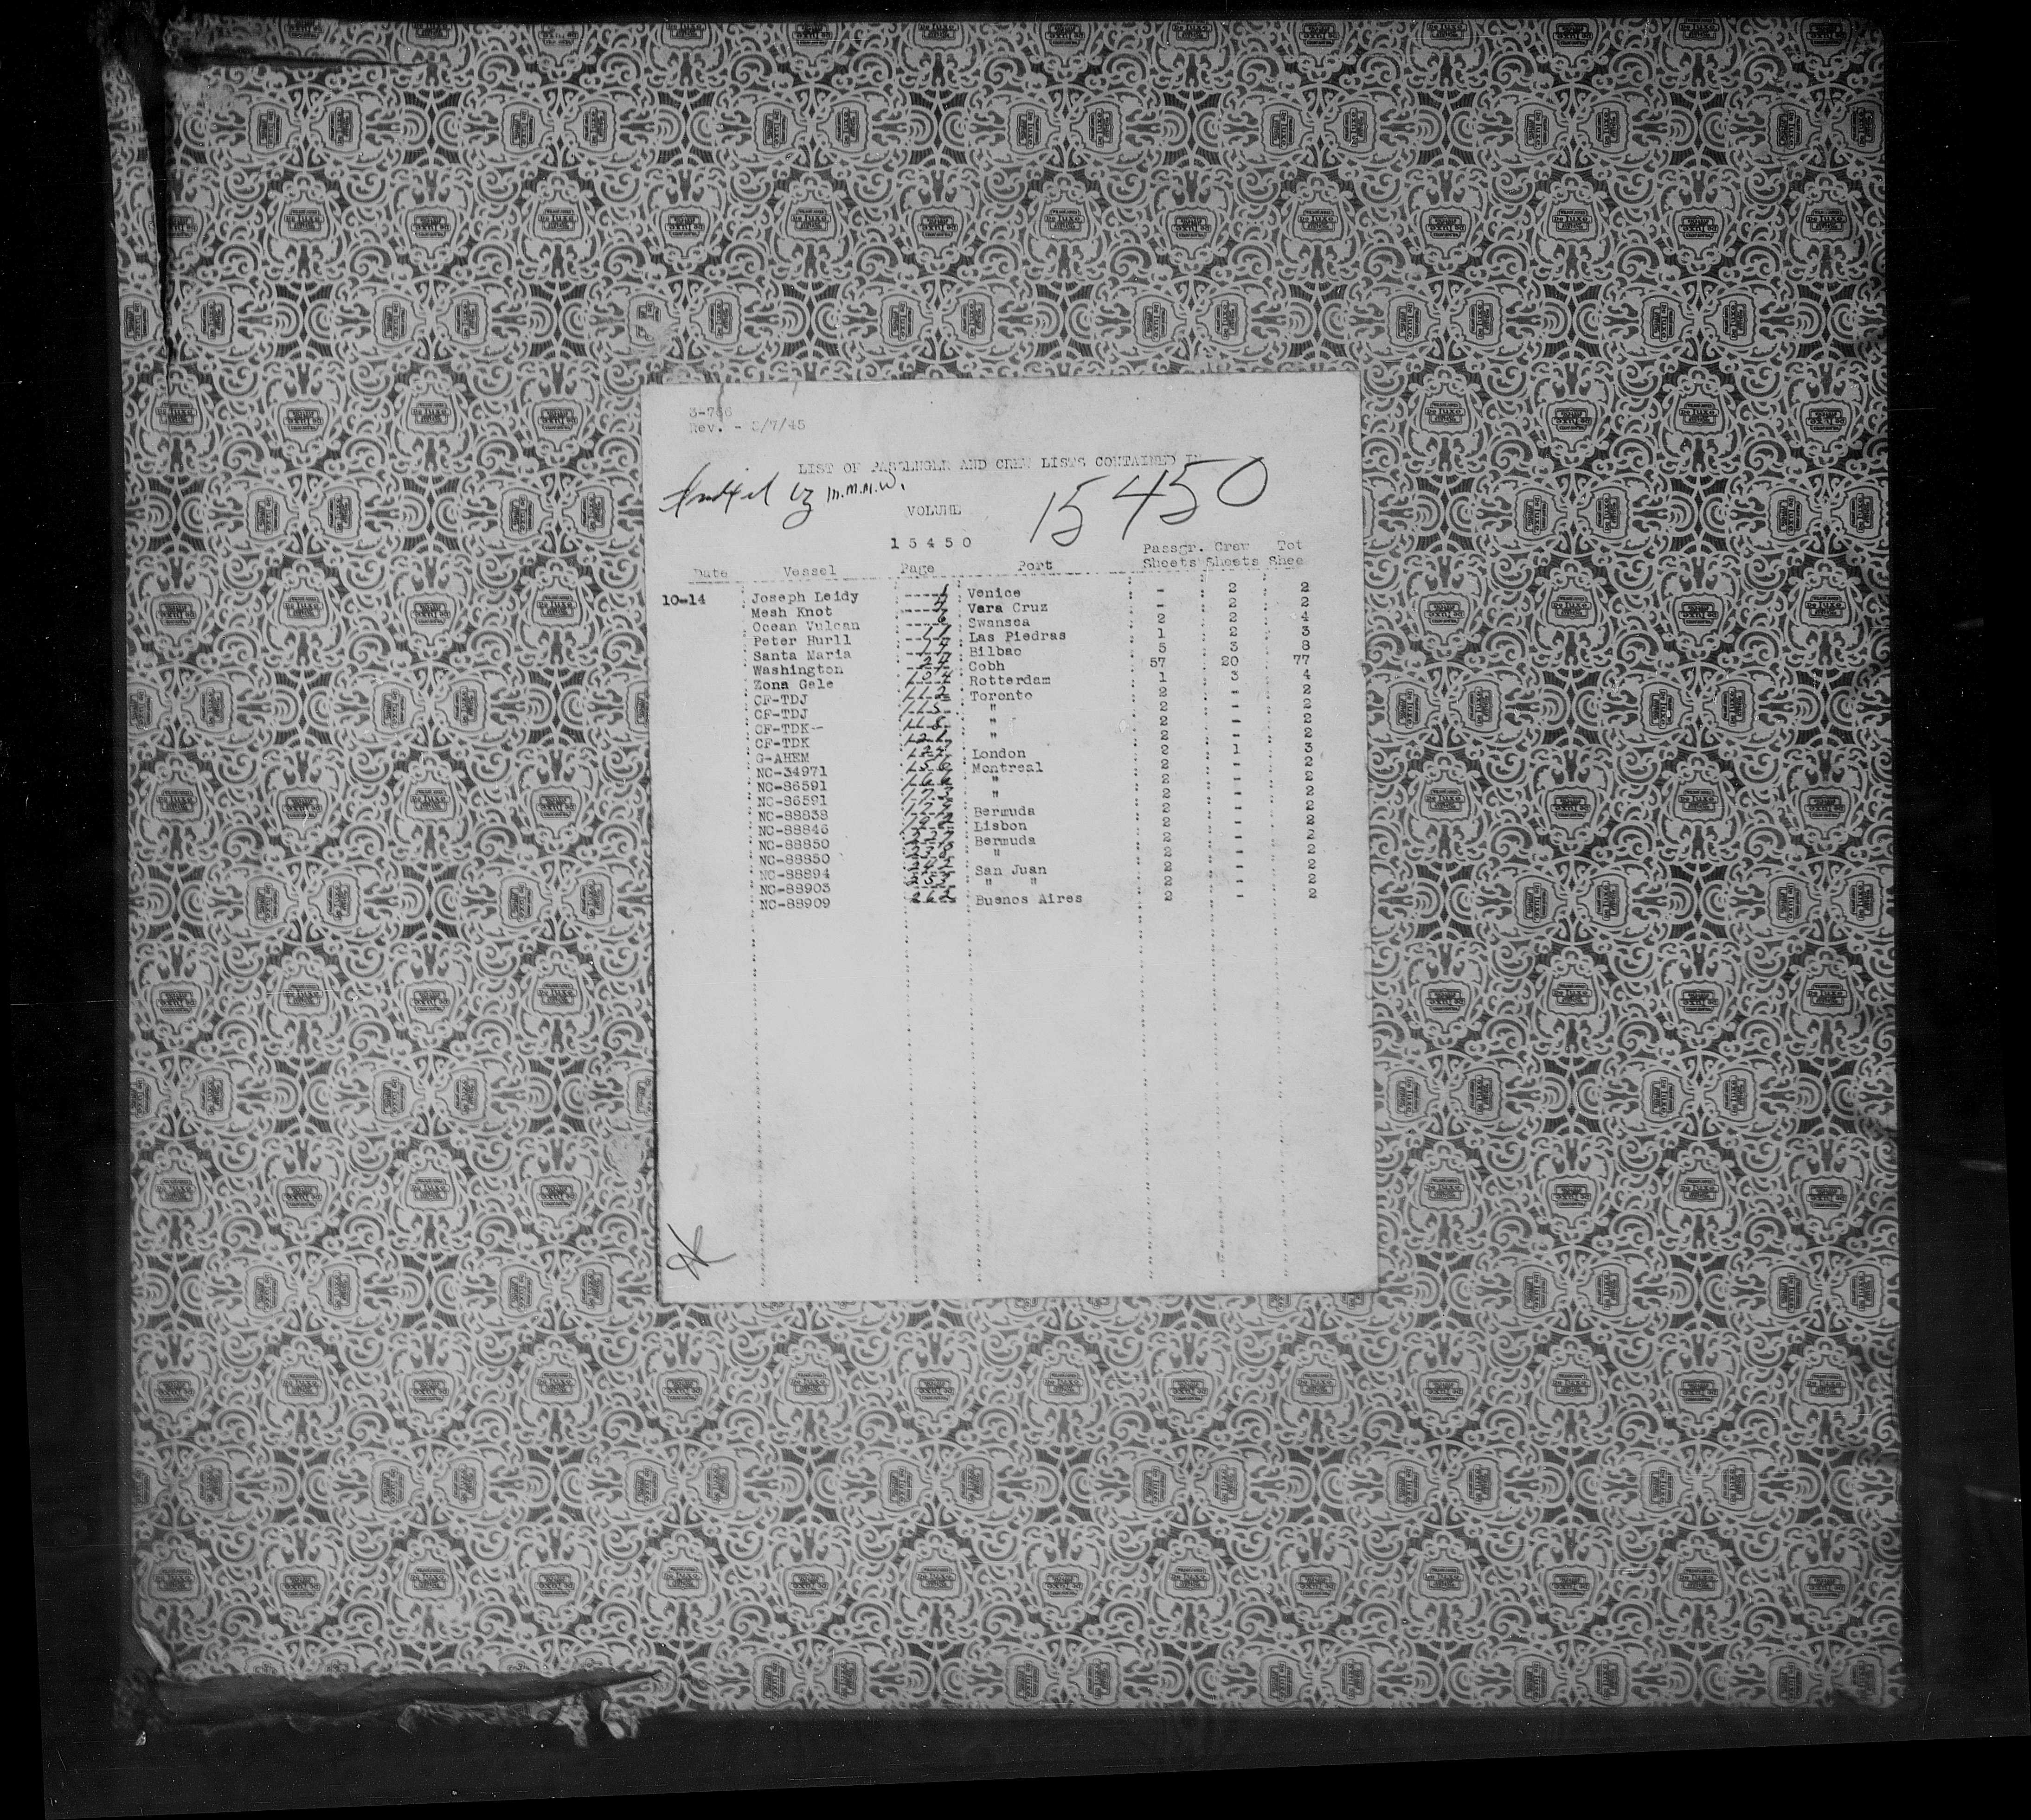 3-766
Rev. - 3/7/45
LIST OF PASSENGER AND CREW LISTS CONTAINED IN
by M.M.M.W.
15450
VOLUME
1 5 4 5 0
Date Vessel Page Port Passgr. Sheets Crew Sheets Tot Shee
10-14 Joseph Leidy Venice - 2 2
Mesh Knot Vara Cruz - 2 2
Ocean Vulcan Swansea 2 2 4
Peter Hurll Las Piedras 1 2 3
Santa Maria Bilbao 5 3 8
Washington Cobh 57 20 77
Zona Gale Rotterdam 1 3 4
CF-TDJ Toronto 2 - 2
CF-TDJ " 2 - 2
CF-TDK " 2 - 2
CF-TDK " 2 - 2
G-AHEM London 2 1 3
NC-34971 Montreal 2 - 2
NC-86591 " 2 - 2
NC-86591 " 2 - 2
NC-88838 Bermuda 2 - 2
NC-88846 Lisbon 2 - 2
NC-88850 Bermuda 2 - 2
NC-88850 " 2 - 2
NC-88894 San Juan 2 - 2
NC-88903 " " 2 - 2
NC-88909 Buenos Aires 2 - 2